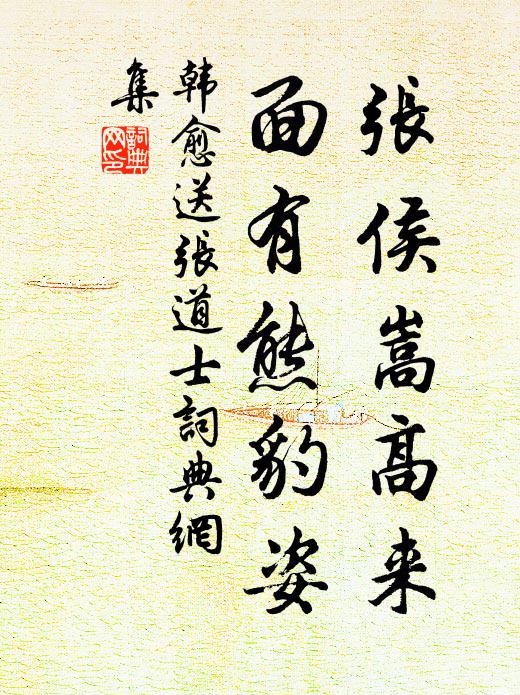 張侯嵩高来
面有熊豹姿
韓愈送張道士詞典網
集
詞典
网印